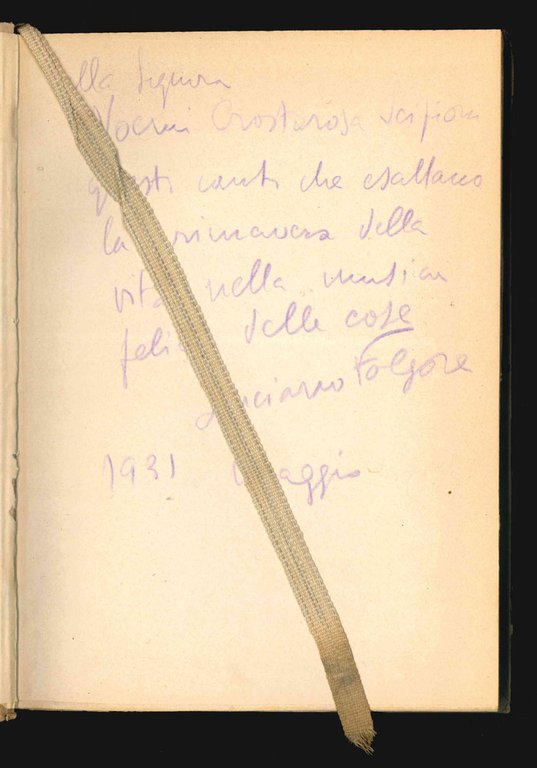 lla Signora
Noemi Crostarosa Scipioni
questi canti che esaltano
la primavera della
vita nella musica
felice delle cose
Luciano Folgore
1931 Maggio